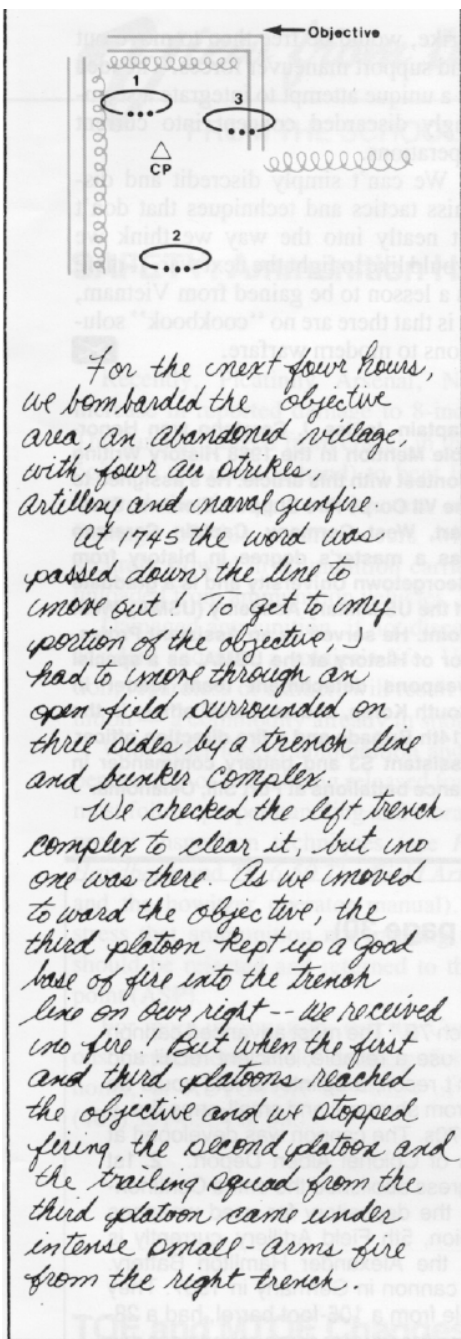 Objective
1
3
CP
2
For the next four hours,
we bombarded the objective
area, an abandoned village,
with four air strikes,
artillery and naval gunfire.
At 1745 the word was
passed down the line to
move out. To get to my
portion of the objective, I
had to move through an
open field surrounded on
three sides by a trench line
and bunker complex.
We checked the left trench
complex to clear it, but no
one was there. As we moved
toward the objective the
third platoon kept up a good
base of fire into the trench
line on our right -- we received
no fire. But when the first
and third platoons reached
the objective and we stopped
firing, the second platoon and
the trailing squad from the
third platoon came under
intense small-arms fire
from the right trench.